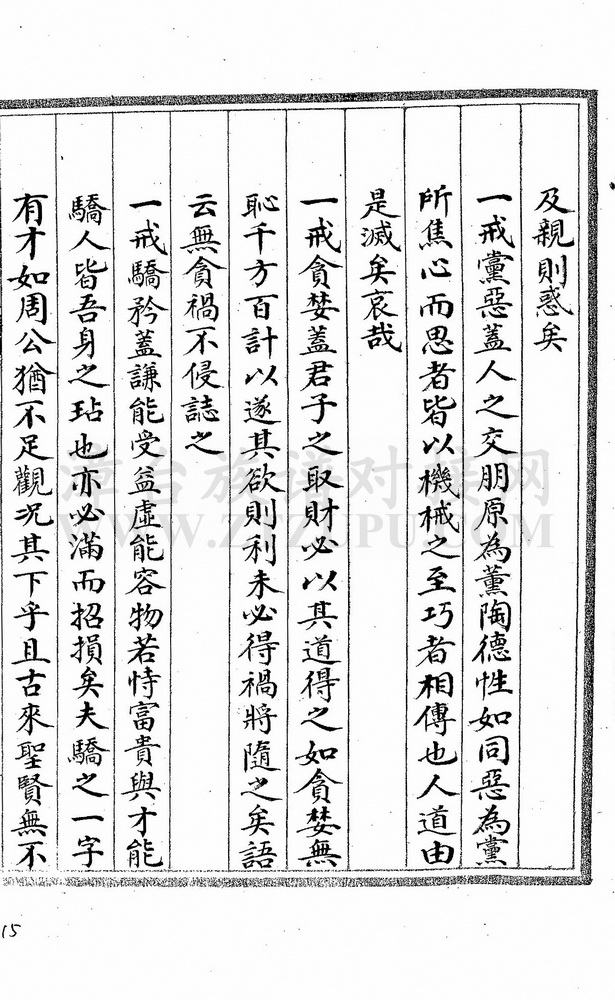 及親則惑矣
一戒黨惡蓋人之交朋原為薰陶德性如同惡為黨
所焦心而思者皆以機械之至巧者相傳也人道由
是滅矣哀哉
一戒貪婪蓋君子之取財必以其道得之如貪婪無
恥千方百計以遂其欲則利未必得禍將隨之矣語
云無貪禍不侵誌之
一戒驕矜蓋謙能受益虛能容物若恃富貴與才能
驕人皆吾身之玷也亦必滿而招損矣夫驕之一字
有才如周公猶不足觀況其下乎且古來聖賢無不
漳台族譜对接网
WWW.ZTZUPU.COM
15